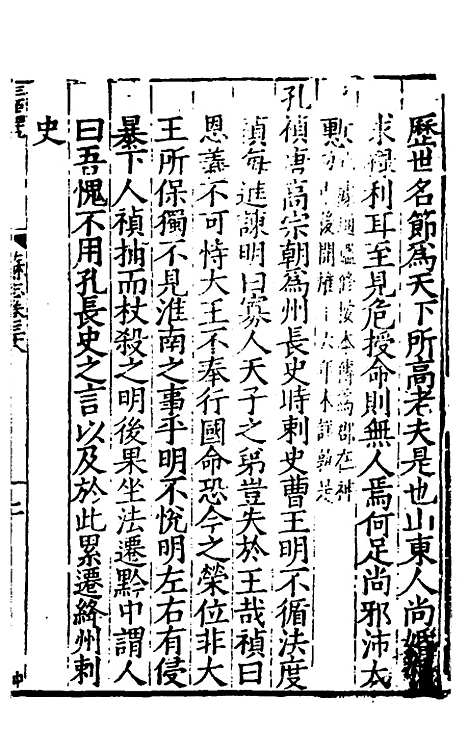 歷世名節爲天下所高老夫是也山東人尚婚
求祿利耳至見危授命則無人焉何足尚邪沛太
慙
孔禎唐高宗朝爲州長史時刺史曹王明不循法度
禎每進諫明曰寡人天子之弟豈失於王哉禎曰
恩義不可恃大王不奉行國命恐今之榮位非大
王所保獨不見淮南之事乎明不悅明左右有侵
暴下人禎拙而杖殺之明後果坐法遷黔中謂人
曰吾愧不用孔長史之言以及於此累遷絳州刺
史